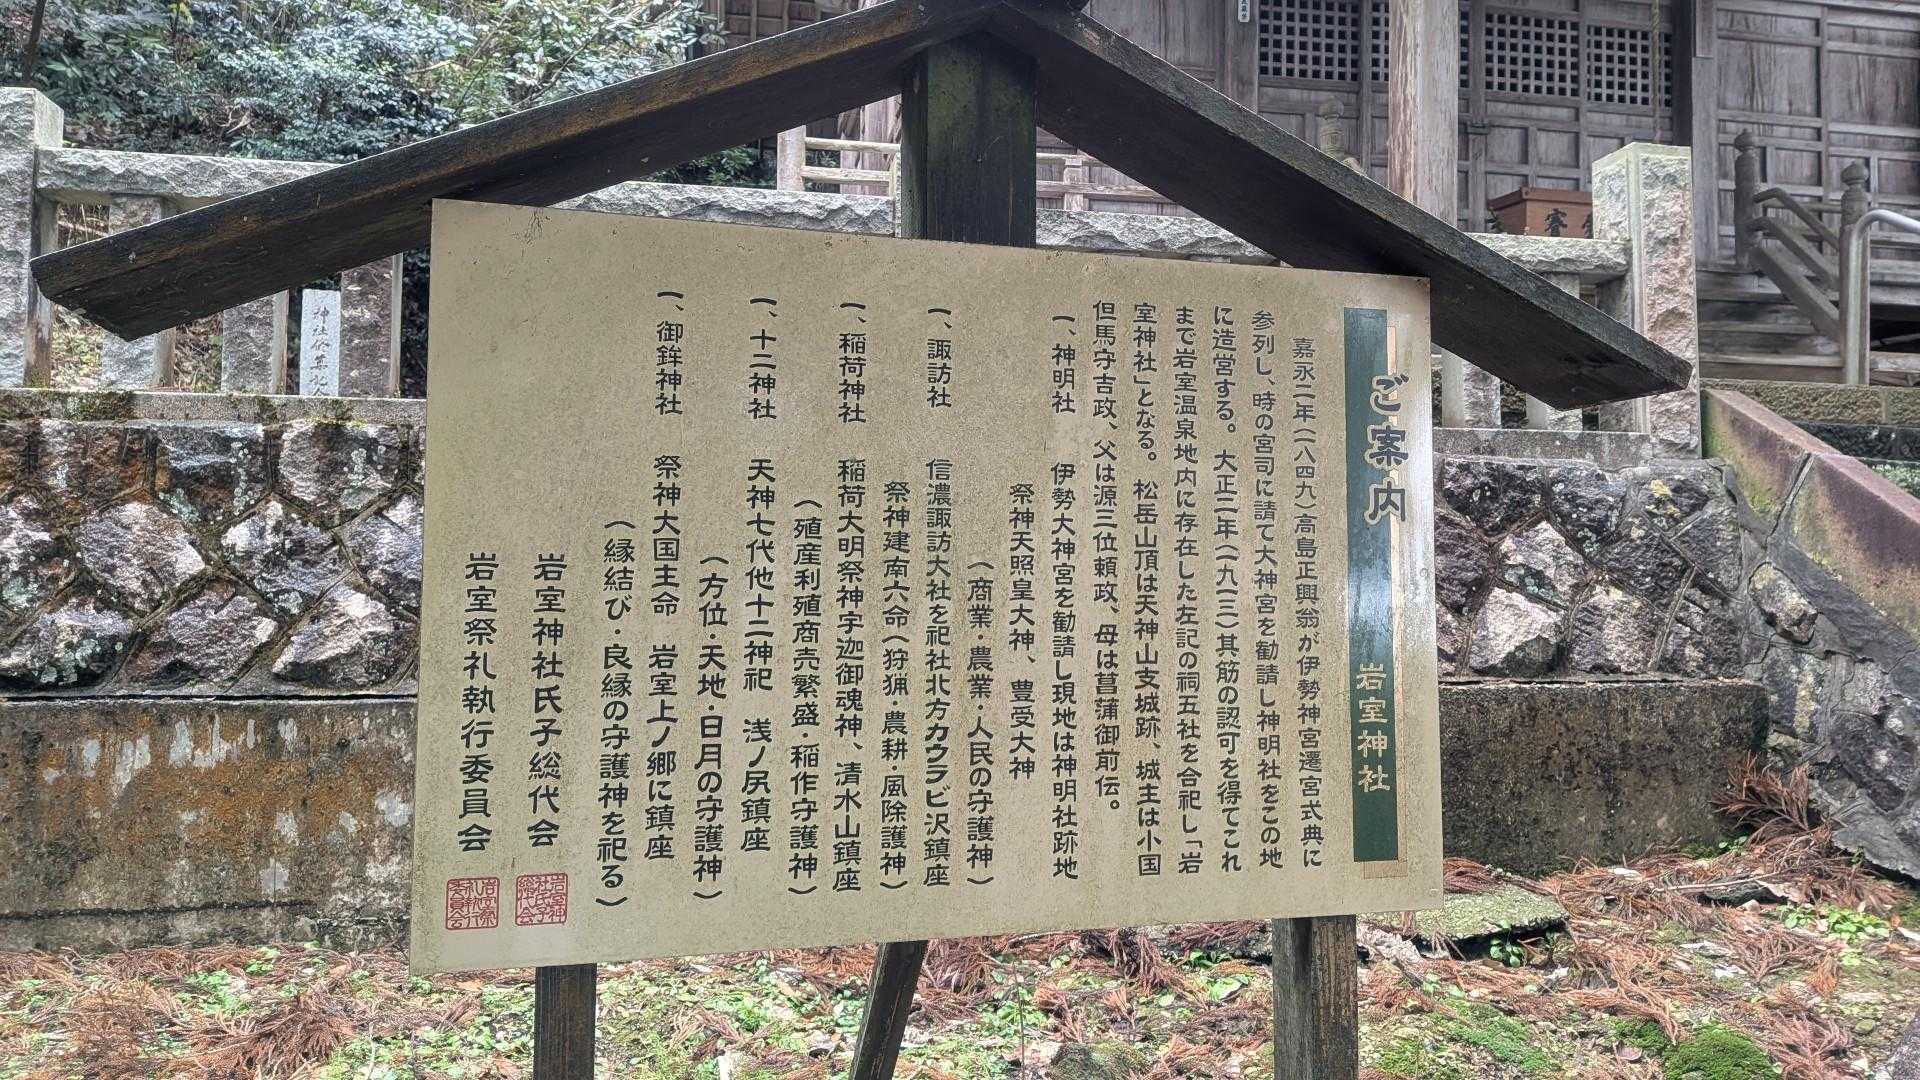 ご案内 岩室神社
嘉永二年(一八四九)高島正興翁が伊勢神宮遷宮式典に
参列し、時の宮司に請て大神宮を勧請し神明社をこの地
に造営する。大正二年(一九一三)其筋の認可を得てこれ
まで岩室温泉地内に存在した左記の祠五社を合祀し「岩
室神社」となる。松岳山頂は天神山支城跡、城主は小国
但馬守吉政、父は源三位頼政、母は菖蒲御前伝。
一、神明社 伊勢大神宮を勧請し現地は神明社跡地
祭神天照皇大神、豊受大神
(商業・農業・人民の守護神)
一、諏訪社 信濃諏訪大社を祀社北方カウラビ沢鎮座
祭神建南六命(狩猟・農耕・風除護神)
一、稲荷神社 稲荷大明祭神宇迦御魂神、清水山鎮座
(殖産利殖商売繁盛・稲作守護神)
一、十二神社 天神七代他十二神祀 浅ノ尻鎮座
(方位・天地・日月の守護神)
一、御鉾神社 祭神大国主命 岩室上ノ郷に鎮座
(縁結び・良縁の守護神を祀る)
岩室神社氏子総代会
岩室神社氏子総代会
岩室祭礼執行委員会
岩室祭礼執行委員会